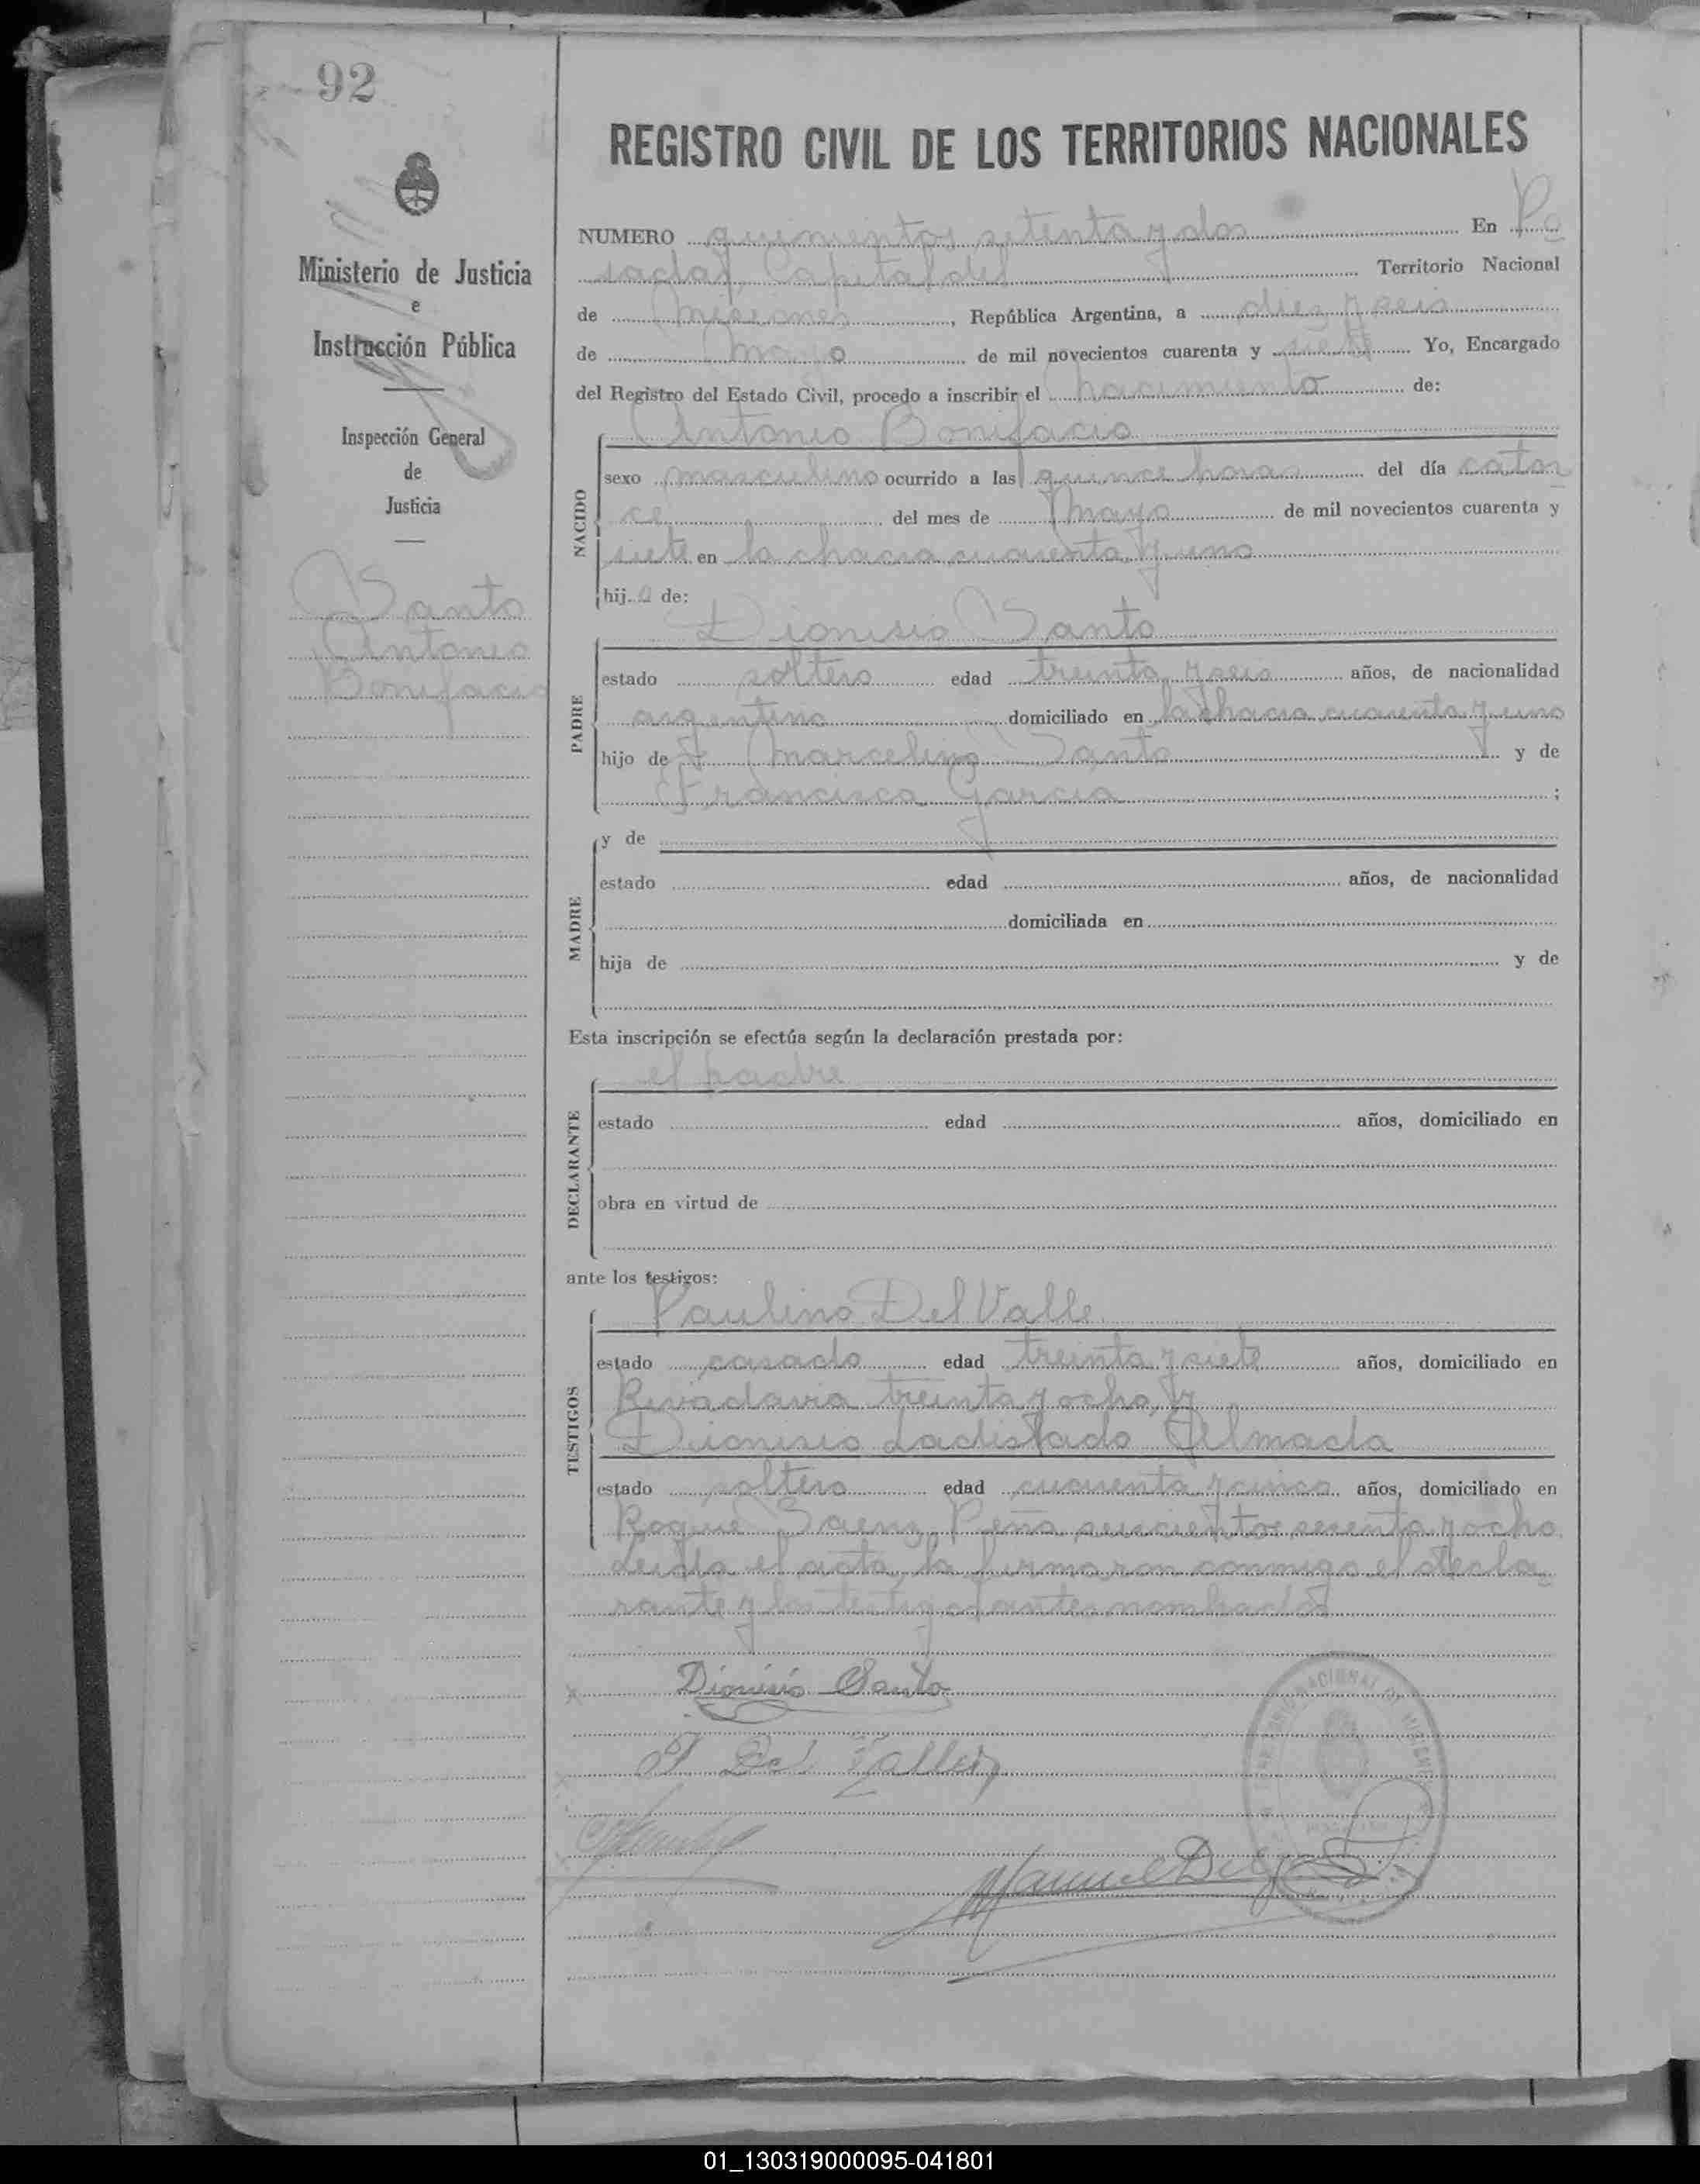 92
REGISTRO CIVIL DE LOS TERRITORIOS NACIONALES
Ministerio de Justicia
e
Instrucción Pública
Inspección General
de
Justicia
Santo
Antonio
Bonifacio
NUMERO quinientos setenta y dos En Po
sadas Capital del Territorio Nacional
de Misiones, República Argentina, a diez y seis
de mayo de mil novecientos cuarenta y siete Yo, Encargado
del Registro del Estado Civil, procedo a inscribir el nacimiento de:
Antonio Bonifacio
NACIDO
sexo masculino ocurrido a las quince horas del día cator
ce del mes de Mayo de mil novecientos cuarenta y
siete en la chacra cuarenta y uno
hijo de:
Dionisio Santo
PADRE
estado soltero edad treinta y seis años, de nacionalidad
argentino domiciliado en la chacra cuarenta y uno
hijo de Marcelino Santo y de
Francisca Garcia ;
MADRE
y de
estado edad años, de nacionalidad
domiciliada en
hija de y de
Esta inscripción se efectúa según la declaración prestada por:
el padre
DECLARANTE
estado edad años, domiciliado en
obra en virtud de
ante los testigos:
Paulino Del Valle
TESTIGOS
estado casado edad treinta y siete años, domiciliado en
Rivadavia treinta y ocho, y
Dionisio Ladislado Almada
estado soltero edad cuarenta y cinco años, domiciliado en
Roque Saenz Peña seiscientos sesenta y ocho.
Leida el acta, la firmaron conmigo el decla-
rante y los testigos antes nombrados
Dionisio Santo
P Del Valle
Manuel
01_130319000095-041801